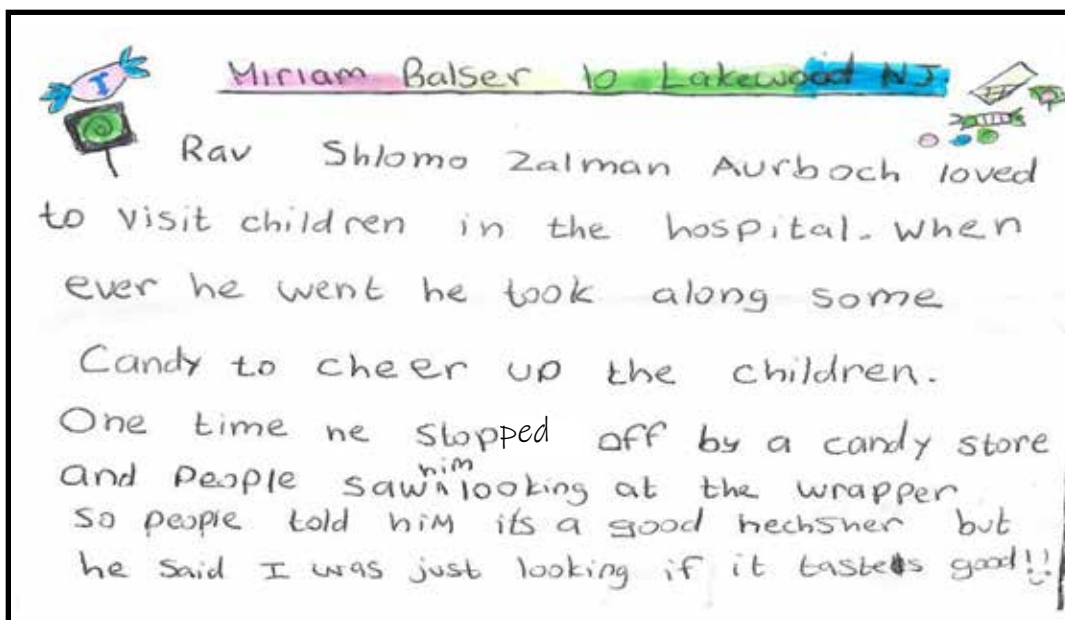 Miriam Balser 10 Lakewood NJ
Rav Shlomo Zalman Aurboch loved
to visit children in the hospital. When
ever he went he took along some
Candy to cheer up the children.
One time he stopped off by a candy store
and people saw him looking at the wrapper
so people told him its a good hechsher but
he said I was just looking if it tastes good!!